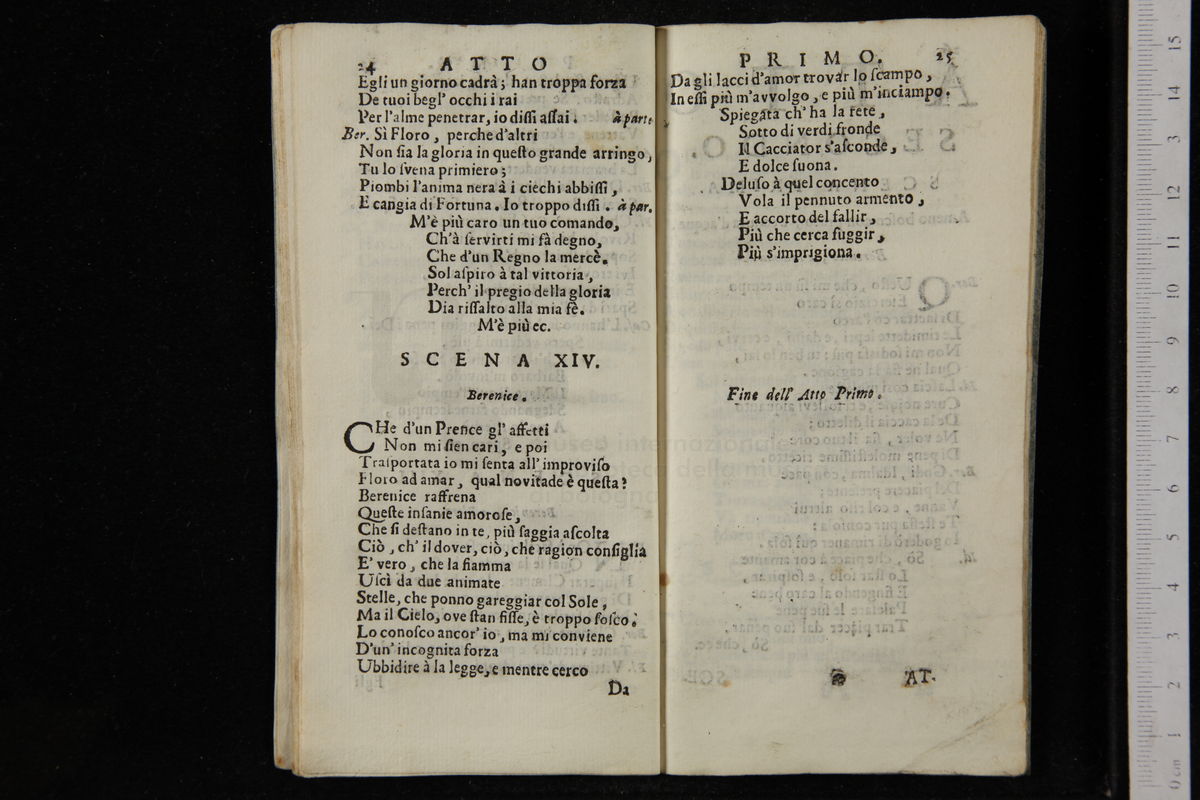 24 ATTO
Egli un giorno cadrà; han troppa forza
De tuoi begl' occhi i rai
Per l'alme penetrar, io dissi assai. à parte
Ber. Sì Floro, perche d'altri
Non sia la gloria in questo grande arringo,
Tu lo svena primiero;
Piombi l'anima nera à i ciechi abbissi,
E cangia di Fortuna. Io troppo dissi. à par.
M'è più caro un tuo comando,
Ch'à servirti mi fà degno,
Che d'un Regno la mercè.
Sol aspiro à tal vittoria,
Perch' il pregio della gloria
Dia rissalto alla mia fè.
M'è più ec.
SCENA XIV.
Berenice.
CHe d'un Prence gl' affetti
Non mi sien cari, e poi
Trasportata io mi senta all' improviso
Floro ad amar, qual novitade è questa?
Berenice raffrena
Queste insanie amorose,
Che si destano in te, più saggia ascolta
Ciò, ch' il dover, ciò, che ragion consiglia
E' vero, che la fiamma
Uscì da due animate
Stelle, che ponno gareggiar col Sole,
Ma il Cielo, ove stan fisse, è troppo fosco.
Lo conosco ancor' io, ma mi conviene
D'un' incognita forza
Ubbidire à la legge, e mentre cerco
Da
PRIMO. 25
Da gli lacci d'amor trovar lo scampo,
In essi più m'avvolgo, e più m'inciampo.
Spiegata ch' ha la rete,
Sotto di verdi fronde
Il Cacciator s'asconde,
E dolce suona.
Deluso à quel concento
Vola il pennuto armento,
E accorto del fallir,
Più che cerca fuggir,
Più s'imprigiona.
Fine dell' Atto Primo.
AT.